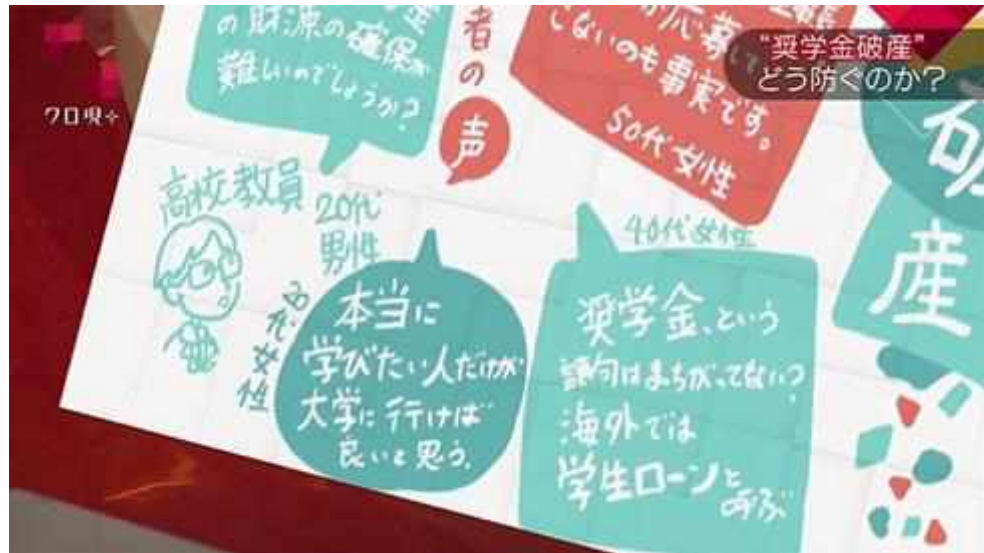 クロ現+
“奨学金破産”
どう防ぐのか?
金
の財源の確保が
難しいのでしょうか?
者の声
応募
しないのも事実です。
50代女性
破
産
高校教員
20代
男性
代女性
本当に
学びたい人だけが
大学に行けば
良いと思う。
40代女性
奨学金、という
語句はまちがってない?
海外では
学生ローンと
呼ぶ